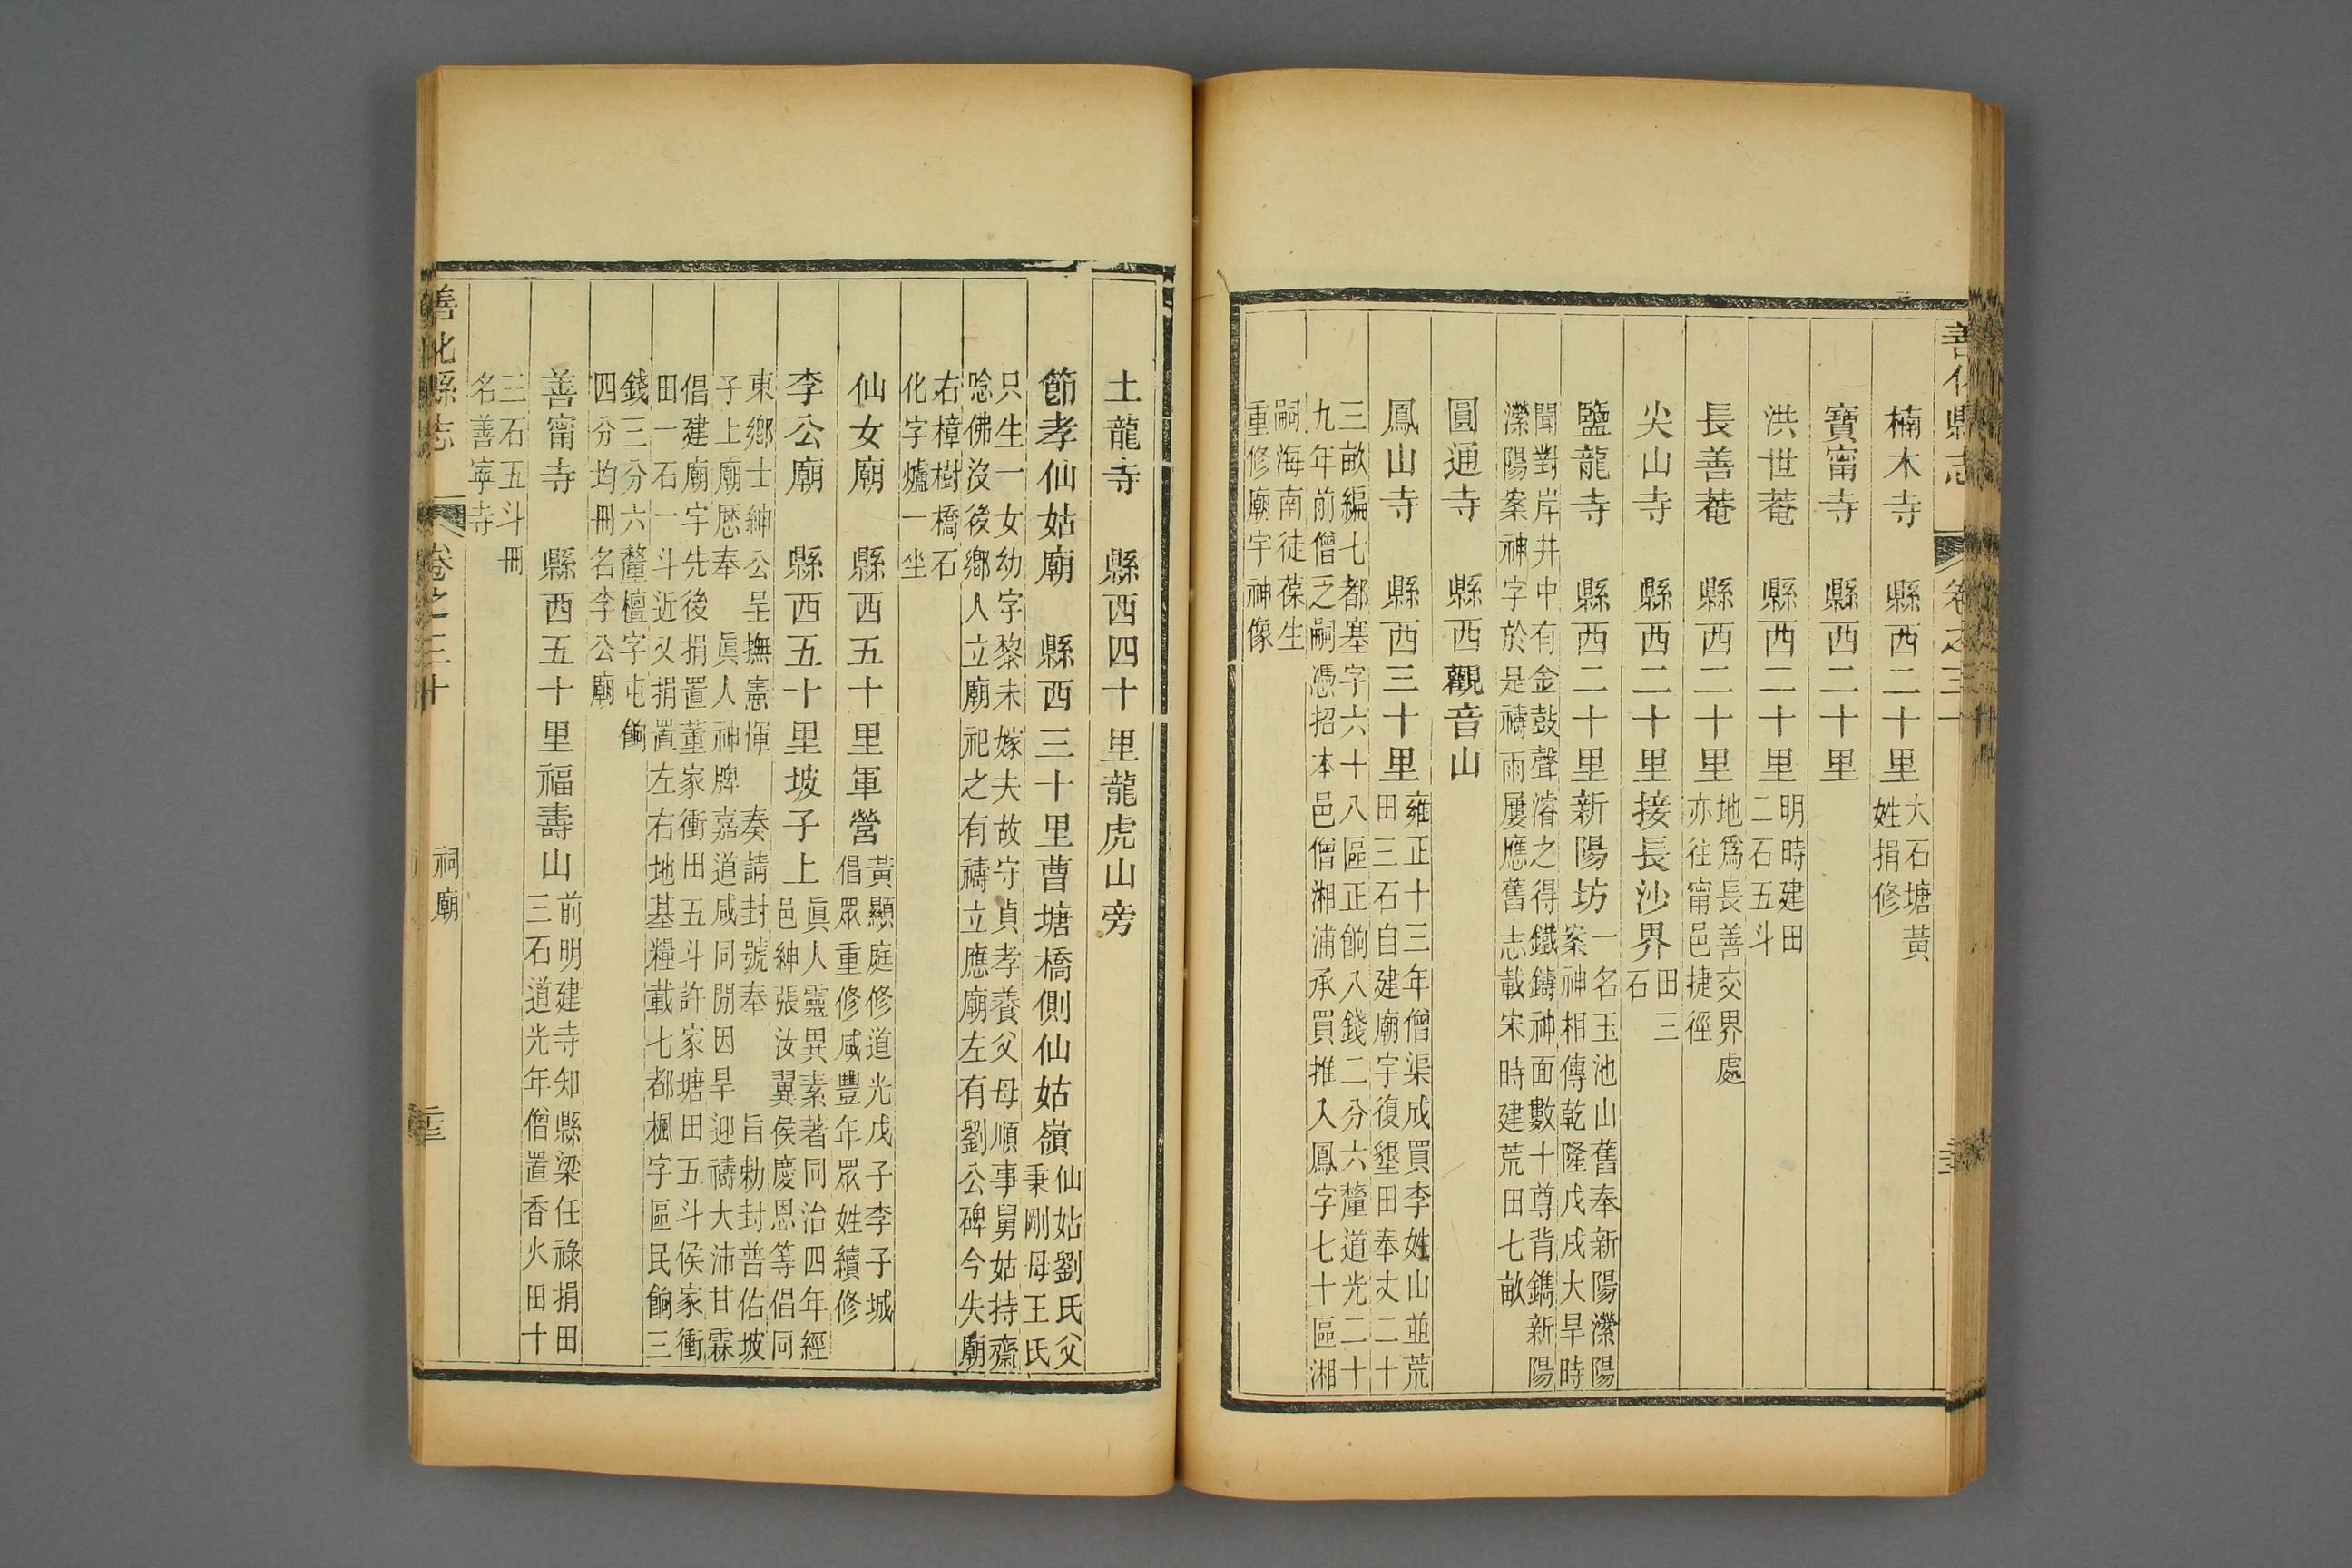 善化縣志 卷之三十
楠木寺 縣西二十里 大石塘黃
姓捐修
寶甯寺 縣西二十里
洪世菴 縣西二十里 明時建田
二石五斗
長善菴 縣西二十里 地爲長善交界處
亦往甯邑捷徑
尖山寺 縣西二十里接長沙界 田三
石
鹽龍寺 縣西二十里新陽坊 一名玉池山舊奉新陽濚陽
案神相傳乾隆戊戌大旱時
聞對岸井中有金鼓聲濬之得鐵鑄神面數十尊背鐫新陽
濚陽案神字於是禱雨屢應舊志載宋時建荒田七畝
圓通寺 縣西觀音山
鳳山寺 縣西三十里 雍正十三年僧渠成買李姓山並荒
田三石自建廟宇復墾田奉丈二十
三畝編七都塞字六十八區正餉八錢二分六釐道光二十
九年前僧乏嗣憑招本邑僧湘浦承買推入鳳字七十區湘
嗣海南徒葆生
重修廟宇神像
土龍寺 縣西四十里龍虎山旁
節孝仙姑廟 縣西三十里曹塘橋側仙姑嶺 仙姑劉氏父
秉剛母王氏
只生一女幼字黎未嫁夫故守貞孝養父母順事舅姑持齋
唸佛沒後鄉人立廟祀之有禱立應廟左有劉公碑今失廟
右樟樹橋石
化字爐一坐
仙女廟 縣西五十里軍營 黃顯庭修道光戊子李子城
倡眾重修咸豐年眾姓續修
李公廟 縣西五十里坡子上 眞人靈異素著同治四年經
邑紳張汝翼侯慶恩等倡同
東鄉士紳公呈撫憲惲 奏請封號奉 旨勅封普佑坡
子上廟厯奉 眞人神牌嘉道咸同閒因旱迎禱大沛甘霖
倡建廟宇先後捐置董家衝田五斗許家塘田五斗侯家衝
田一石一斗近又捐置左右地基糧載七都楓字區民餉三
錢三分六釐檀字屯餉
四分均冊名李公廟
善甯寺 縣西五十里福壽山 前明建寺知縣梁任祿捐田
三石道光年僧置香火田十
三石五斗冊
名善寧寺
善化縣志 卷之三十 祠廟